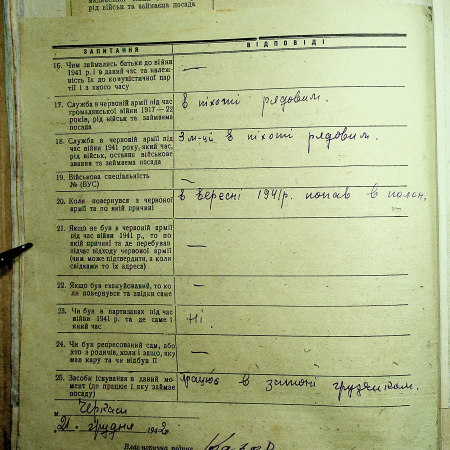 рід військ та займаєма посада
ЗАПИТАННЯ
ВІДПОВІДІ
16. Чим займались батьки до війни
1941 р. і в даний час та належ-
ність їх до комуністичної пар-
тії і з якого часу
—
17. Служба в червоній армії під час
громадянської війни 1917—22
років, рід військ та займаєма
посада
в піхоті рядовим.
18. Служба в червоній армії під
час війни 1941 року, який час,
рід військ, останнє військове
звання та займаєма посада
3 м-ці в піхоті рядовим.
19. Військова спеціальність
№ (ВУС)
—
20. Коли повернувся з червоної
армії та по якій причині
в вересні 1941р. попав в полон,
21. Якщо не був в червоній армії
під час війни 1941 р., то по
якій причині та де перебував
підчас відходу червоної армії
(чим може підтвердити, а коли
свідками то їх адреса)
—
22. Якщо був евакуйований, то ко
ли повернувся та звідки саме
—
23. Чи був в партизанах під час
війни 1941 р. та де саме і
який час
Ні.
24. Чи був репресований сам, або
хто з родичів, коли і защо, яку
мав кару та чи відбув її
—
25. Засоби існування в даний мо-
мент (де працює і яку займає
посаду)
працює в затоні грузчиком.
м. Черкаси
"21" грудня 1942р.
Власноручна підпис